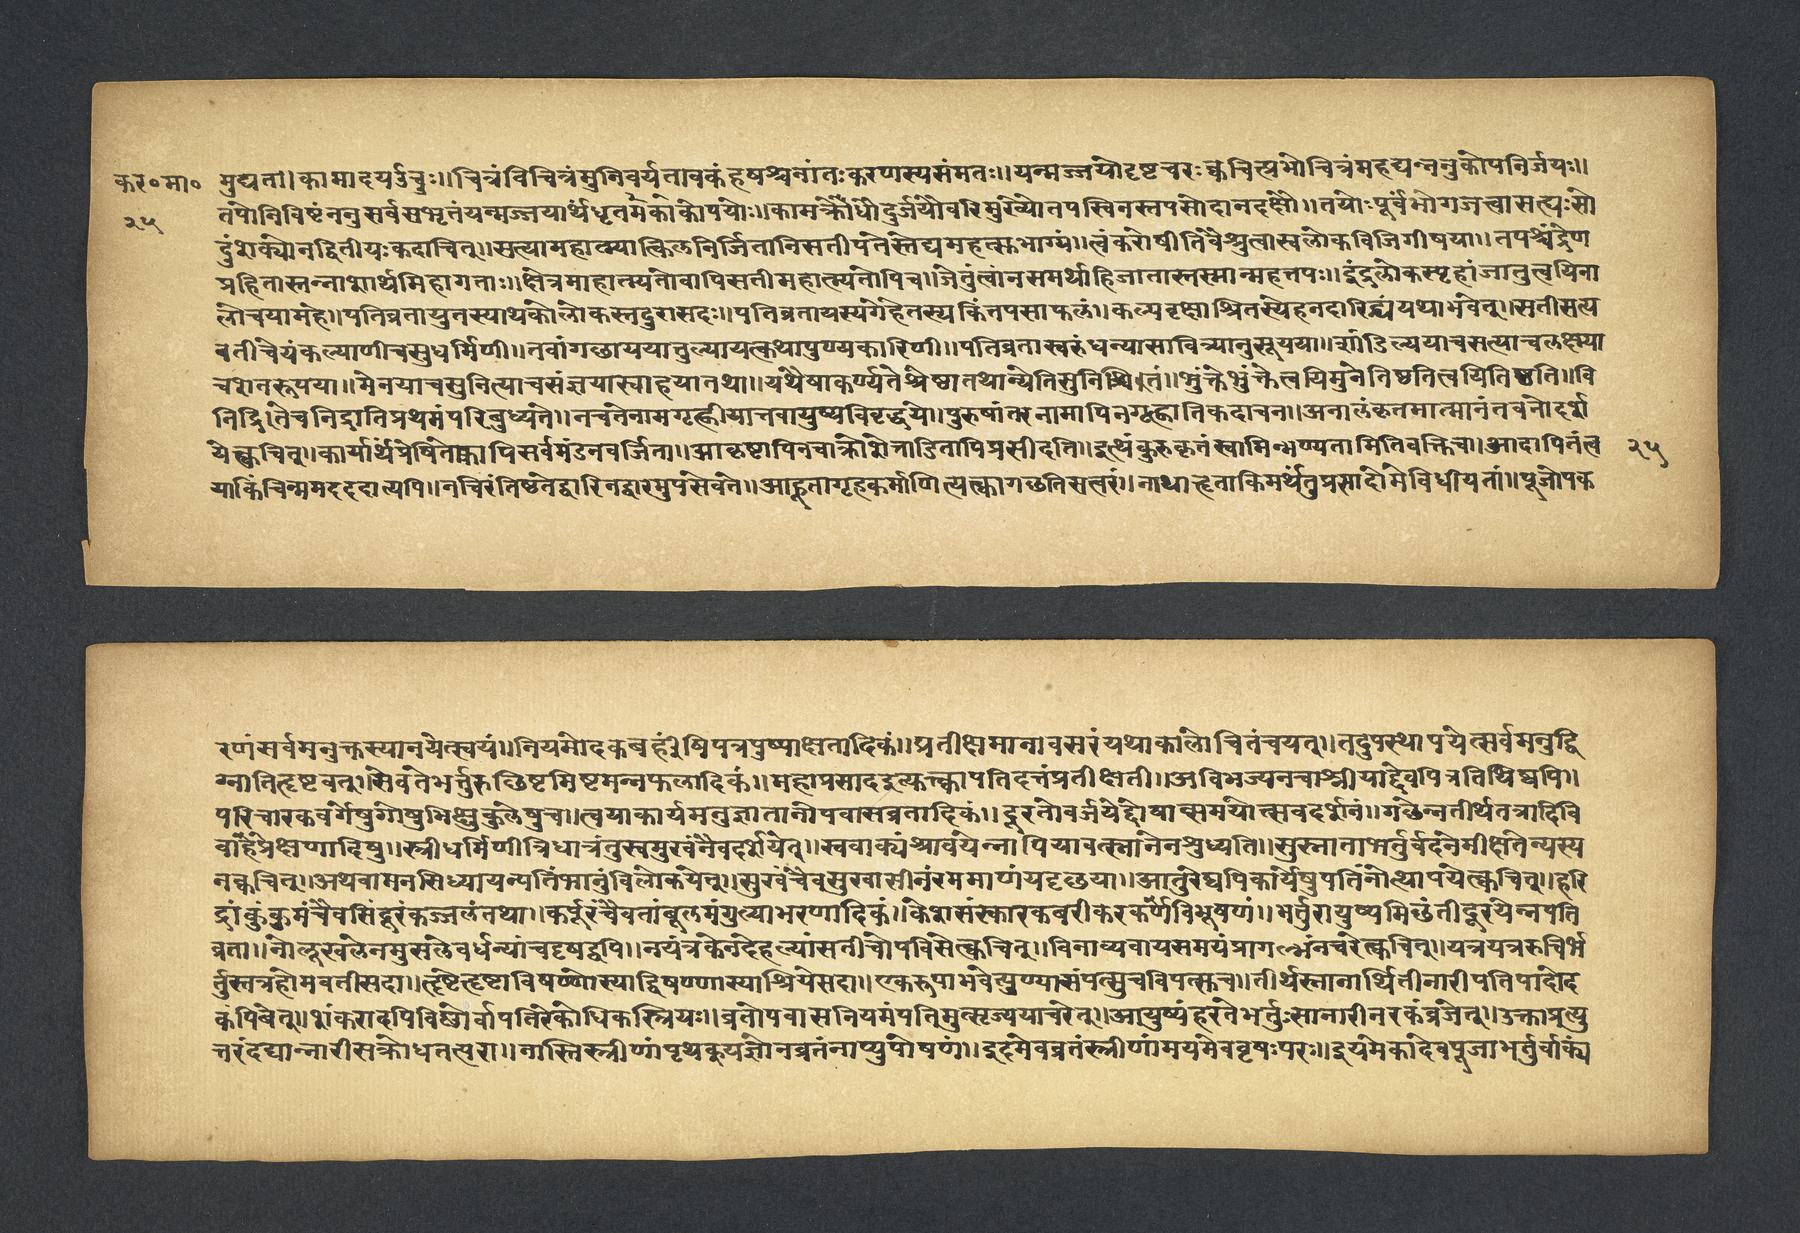 कर०मा० मुद्यता।कामादयऽउचुः॥चित्रंविचित्रंमुनिवर्यतावकंहषश्चनांतःकरणस्यसंमतः॥यन्मज्जयोदृष्टचरःक्वचित्प्रभोचित्रंमहद्यन्ननुकोपनिर्जयः॥
२५ तपोनिविष्टंननुसर्वसभृतंयन्मज्जयार्थंधृतमेकाकोपयोः॥कामक्रोधौदुर्जयौवरिमुख्योतपस्विनस्तपसोदानदक्षौ॥तयोःपूर्वंभोगजत्वासत्पःसो
दुंशक्योनद्वितीयःकदाचित्॥सत्यामहात्म्यात्किलनिर्जितानिसतीपतेस्तेद्यमहत्सभाग्यं॥त्वंकरोषीतिवैश्रुत्वास्वर्लोकविजिगीषया॥तपश्चंद्रेण
प्रहितास्तन्नाशार्थमिहागताः॥क्षेत्रमाहात्म्यतोवापिसतीमहात्म्यतोपिच।जेतुंत्वांनसमर्थाहिजातास्तस्मान्महत्तपः॥इंद्रलोकस्पृहांजातुत्वयिना
लोचयामहे॥पतिव्रतायुतस्याथकोलोकस्तदुरासदः॥पतिव्रतायस्यगेहेतस्यकिंतपसाफलं॥कल्पवृक्षाश्रितस्येहनदारिद्र्यंयथाभवेत्॥सतीसत्य
वतीचेयंकल्याणीचसुधर्मिणी॥तवांगछाययातुल्यायत्कथापुण्यकारिणी॥पतिव्रतास्वरुंधन्यासावित्र्यानुसूयया॥शांडिल्ययाचसत्याचलक्ष्म्या
चशतरूपया॥मेनयाचसुनित्याचसंज्ञयास्वाहयातथा॥यथैषाकर्ण्यतेश्रेष्ठातथान्येतिसुनिश्चितं॥भुंक्तेभुंक्तेत्वयिमुनेतिष्ठतित्वयितिष्ठति॥वि
निद्रितेचनिद्रातिप्रथमंपरिबुध्यते॥नचतेनामगृह्णीयात्तवायुष्यविवृद्धये॥पुरुषांतरनामापिनगृह्णातिकदाचन॥अनालंकृतमात्मानंतवनोदर्श
येत्क्वचित्॥कार्यार्थंप्रेषितेक्वापिसर्वमंडनवर्जिता॥आकृष्टापिनचाक्रोशेत्ताडितापिप्रसीदति॥इत्थंकुरुकृतंस्वामिन्भण्यतामितिवक्तिचा॥आदापितंत्व २५
याकिंचिन्ममददद्दात्यपि॥नचिरंतिष्ठतेद्वारिनद्वारमुपसेवते॥आहूतागृहकर्माणित्यत्काागछतिसत्वरं॥नाथाहृताकिमर्थंतुप्रसादोमेविधीयतां॥पूजोपक
रणंसर्वमनुक्तस्यानयेत्स्वयं॥नियमोदकबर्हींषिपत्रपुष्पाक्षतादिकं॥प्रतीक्षमानावसरंयथाकालोचितंचयत्॥तदुपस्थापयेत्सर्वमनुद्वि
ग्नातिहृष्टवत्॥सेवतेभर्तुरुछिष्टमिष्टमन्नफलादिकं॥महाप्रसादइत्युक्त्वापतिदत्तंप्रतीक्षती॥अविभज्यनचाश्नीयाद्देवपित्रतिथिष्वपि॥
परिचारकवर्गेषुगोषुभिक्षुकुलेषुच॥त्वयाकार्यमनुज्ञातानोपवासव्रतादिकं॥दूरतोवर्जयेद्दोषान्समयोत्सवदर्शनं॥गछेन्नतीर्थतत्रादिवि
वाहेप्रेक्षणादिषु॥स्त्रीधर्मिणीत्रिधात्रंतुस्वमुखंनैवदर्शयेत्॥स्ववाक्यंश्रावयेन्नापियावत्स्नानेनशुध्यति॥सुस्नाताभर्तुर्वदनमीक्षतेन्यस्य
नक्वचित्॥अथवामनसिध्यायन्पतिंभानुंविलोकयेत्॥सुखंचैवसुखासीनंरममाणंयदृछया॥आतुरेष्वपिकार्येषुपतिंनोत्थापयेत्क्वचित्॥हरि
द्रांकुंकुमंचैवसिंदूरंकज्जलंतथा॥कर्पूरंचैवतांबूलमंगुल्याभरणादिकं॥केशसंस्कारकबरीकरकर्णविभूषणं॥भर्तुरायुष्यमिछंतीदूरयेन्नपति
व्रता॥नोलूखलेनमुसलेवर्धन्यांचदृषद्यपि॥नयंत्रकेनदेहल्यांसतीचोपविसेत्क्वचित्॥विनाव्यवायसमयंप्रागल्भंनचरेत्क्वचित्॥यत्रयत्ररुचिर्भ
र्तुस्तत्रहोमवतीसदा॥हृष्टेहृष्टाविषण्णेस्याद्विषण्णास्याश्रियेसदा॥एकरूपाभवेत्पुण्यासंपत्सुचविपत्सुच॥तीर्थस्नानार्थितीनारीपतिपादोद
कंपिबेत्॥शंकरादपिविष्णोर्वापतिरेकोधिकस्त्रियः॥व्रतोपवासनियमंपतिमुत्सृज्ययाचरेत्॥आयुष्यंहरतेभर्तुःसानारीनरकंव्रजेत्॥उक्ताप्रत्यु
त्तरंदद्यान्नारीसक्रोधतत्परा॥नास्तिस्त्रीणांपृथक्‌यज्ञोनव्रतंनाप्युपोषणं॥इदमेवव्रतंस्त्रीणांमयमेववृषःपरः॥इयमेकादेवपूजाभर्तुर्वाक्यं